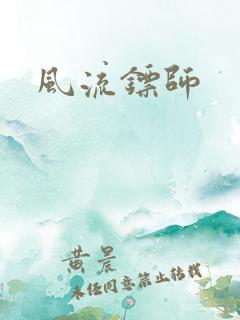 風流鏢師
黄晨
未经同意禁止转载